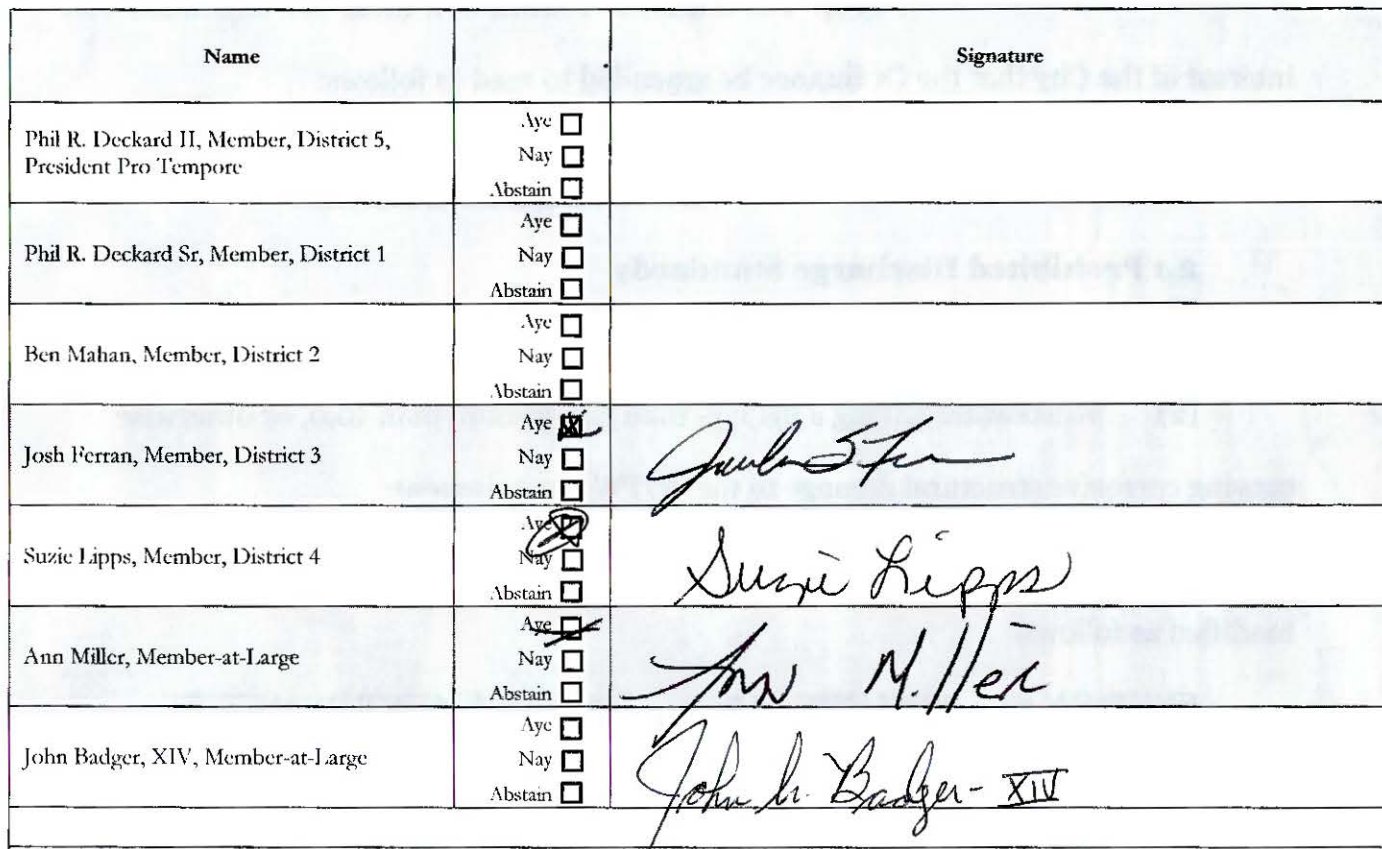 Name Signature
Phil R. Deckard II, Member, District 5,
President Pro Tempore
Aye
Nay
Abstain
Phil R. Deckard Sr, Member, District 1
Aye
Nay
Abstain
Ben Mahan, Member, District 2
Aye
Nay
Abstain
Josh Ferran, Member, District 3
Aye
Nay
Abstain
Suzie Lipps, Member, District 4
Aye
Nay
Abstain
Suzie Lipps
Ann Miller, Member-at-Large
Aye
Nay
Abstain
Ann Miller
John Badger, XIV, Member-at-Large
Aye
Nay
Abstain
John Badger- XIV